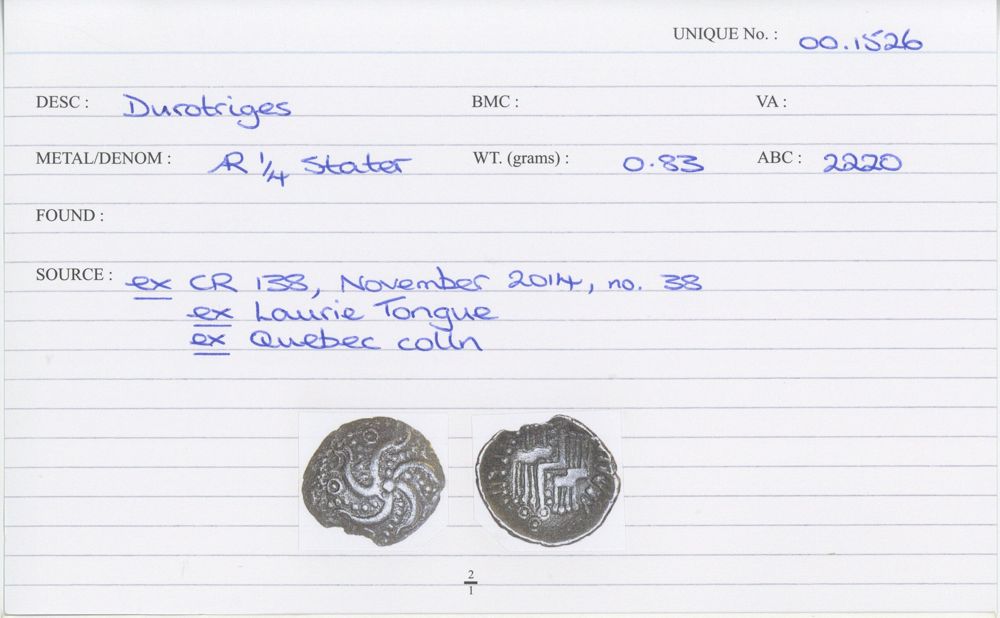 UNIQUE No. : 00.1526
DESC : Durotriges BMC : VA :
METAL/DENOM : AR 1/4 Stater WT. (grams) : 0.83 ABC : 2220
FOUND :
SOURCE : ex CR 138, November 2014, no. 38
ex Laurie Tongue
ex Quebec colln
2
1